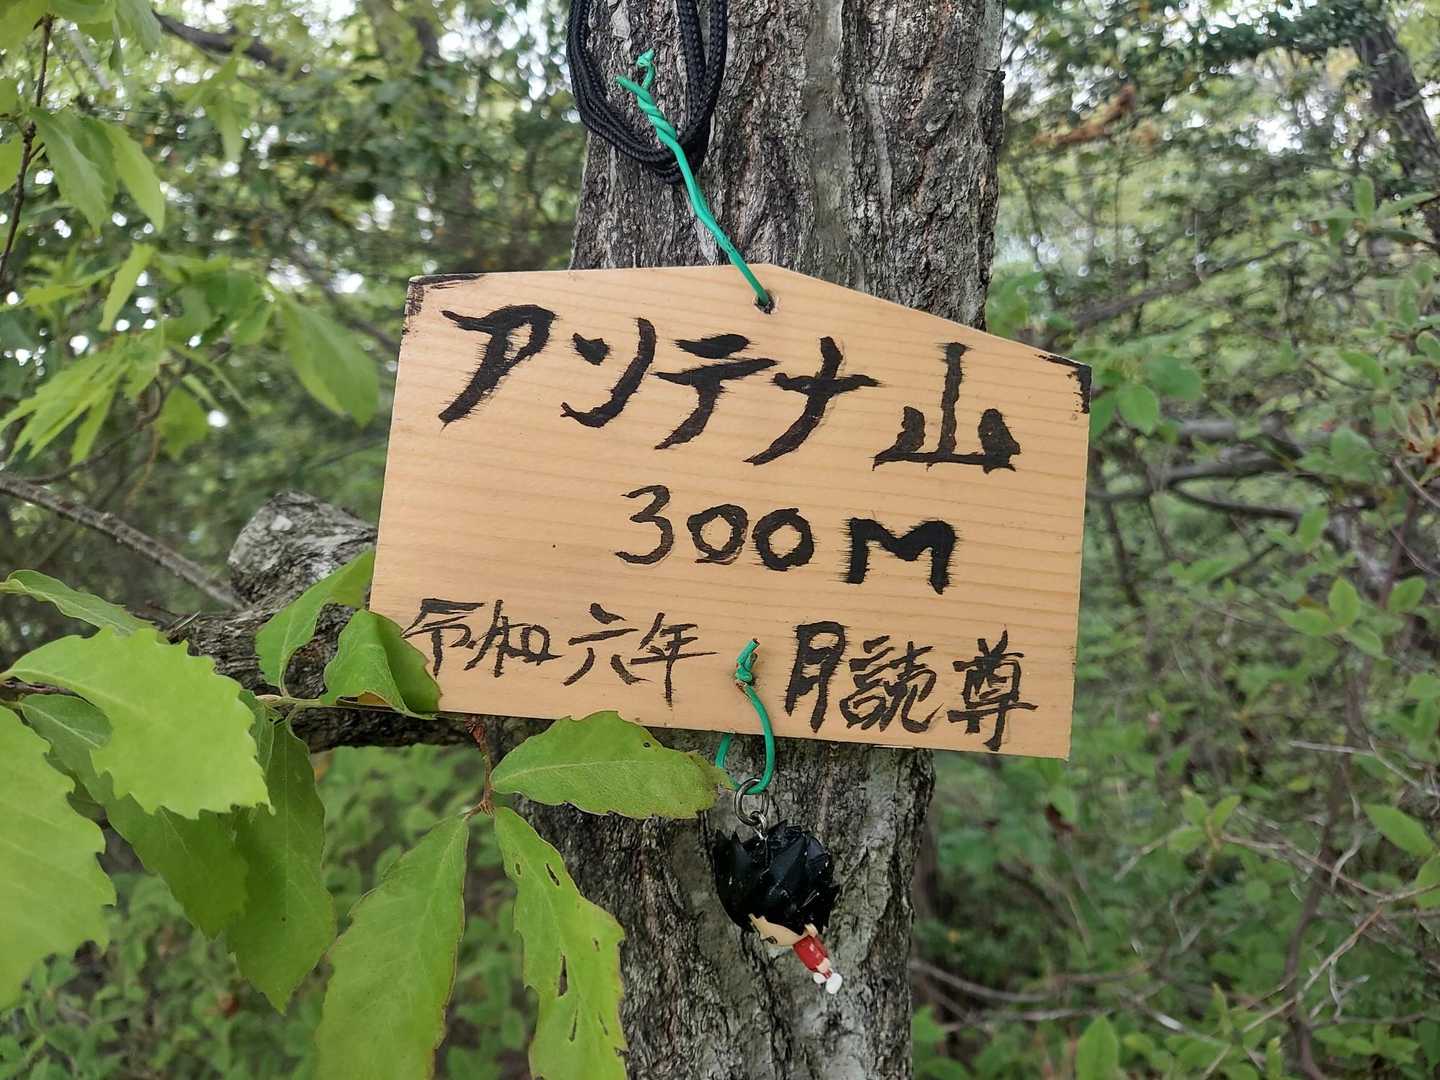 アンテナ山
300M
令和六年 月読尊